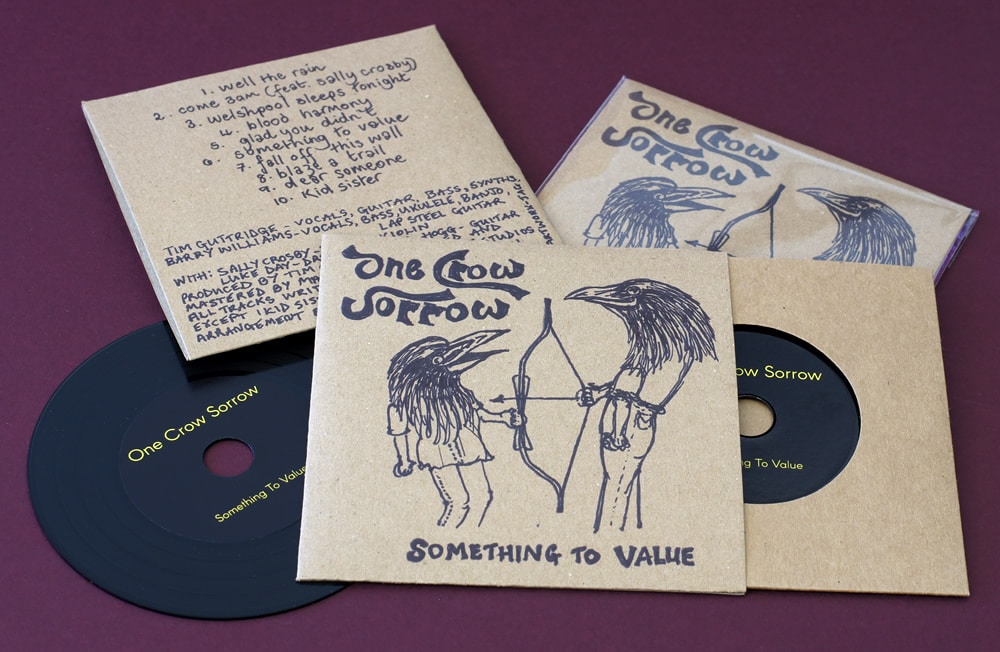 1. well the rain
2. come 3am (feat. sally crosby)
3. welshpool sleeps tonight
4. blood harmony
5. glad you didn't
6. something to value
7. fall off this wall
8. blaze a trail
9. dear someone
10. kid sister
TIM GUTTRIDGE - VOCALS, GUITAR, BASS, SYNTHS.
BARRY WILLIAMS - VOCALS, BASS, UKULELE, BANJO,
LAP STEEL GUITAR
WITH: SALLY CROSBY -
VIOLIN
HOGG - GUITAR
LUKE DAY - DR
ED AND
PRODUCED BY TIM
STUDIOS
MASTERED BY MA
ALL TRACKS WRIT
EXCEPT 'KID SIS
ARRANGEMENT
ARTWORK - SA
One Crow
Sorrow
One Crow
Sorrow
SOMETHING TO VALUE
One Crow Sorrow
Something To Value
ow Sorrow
g To Value